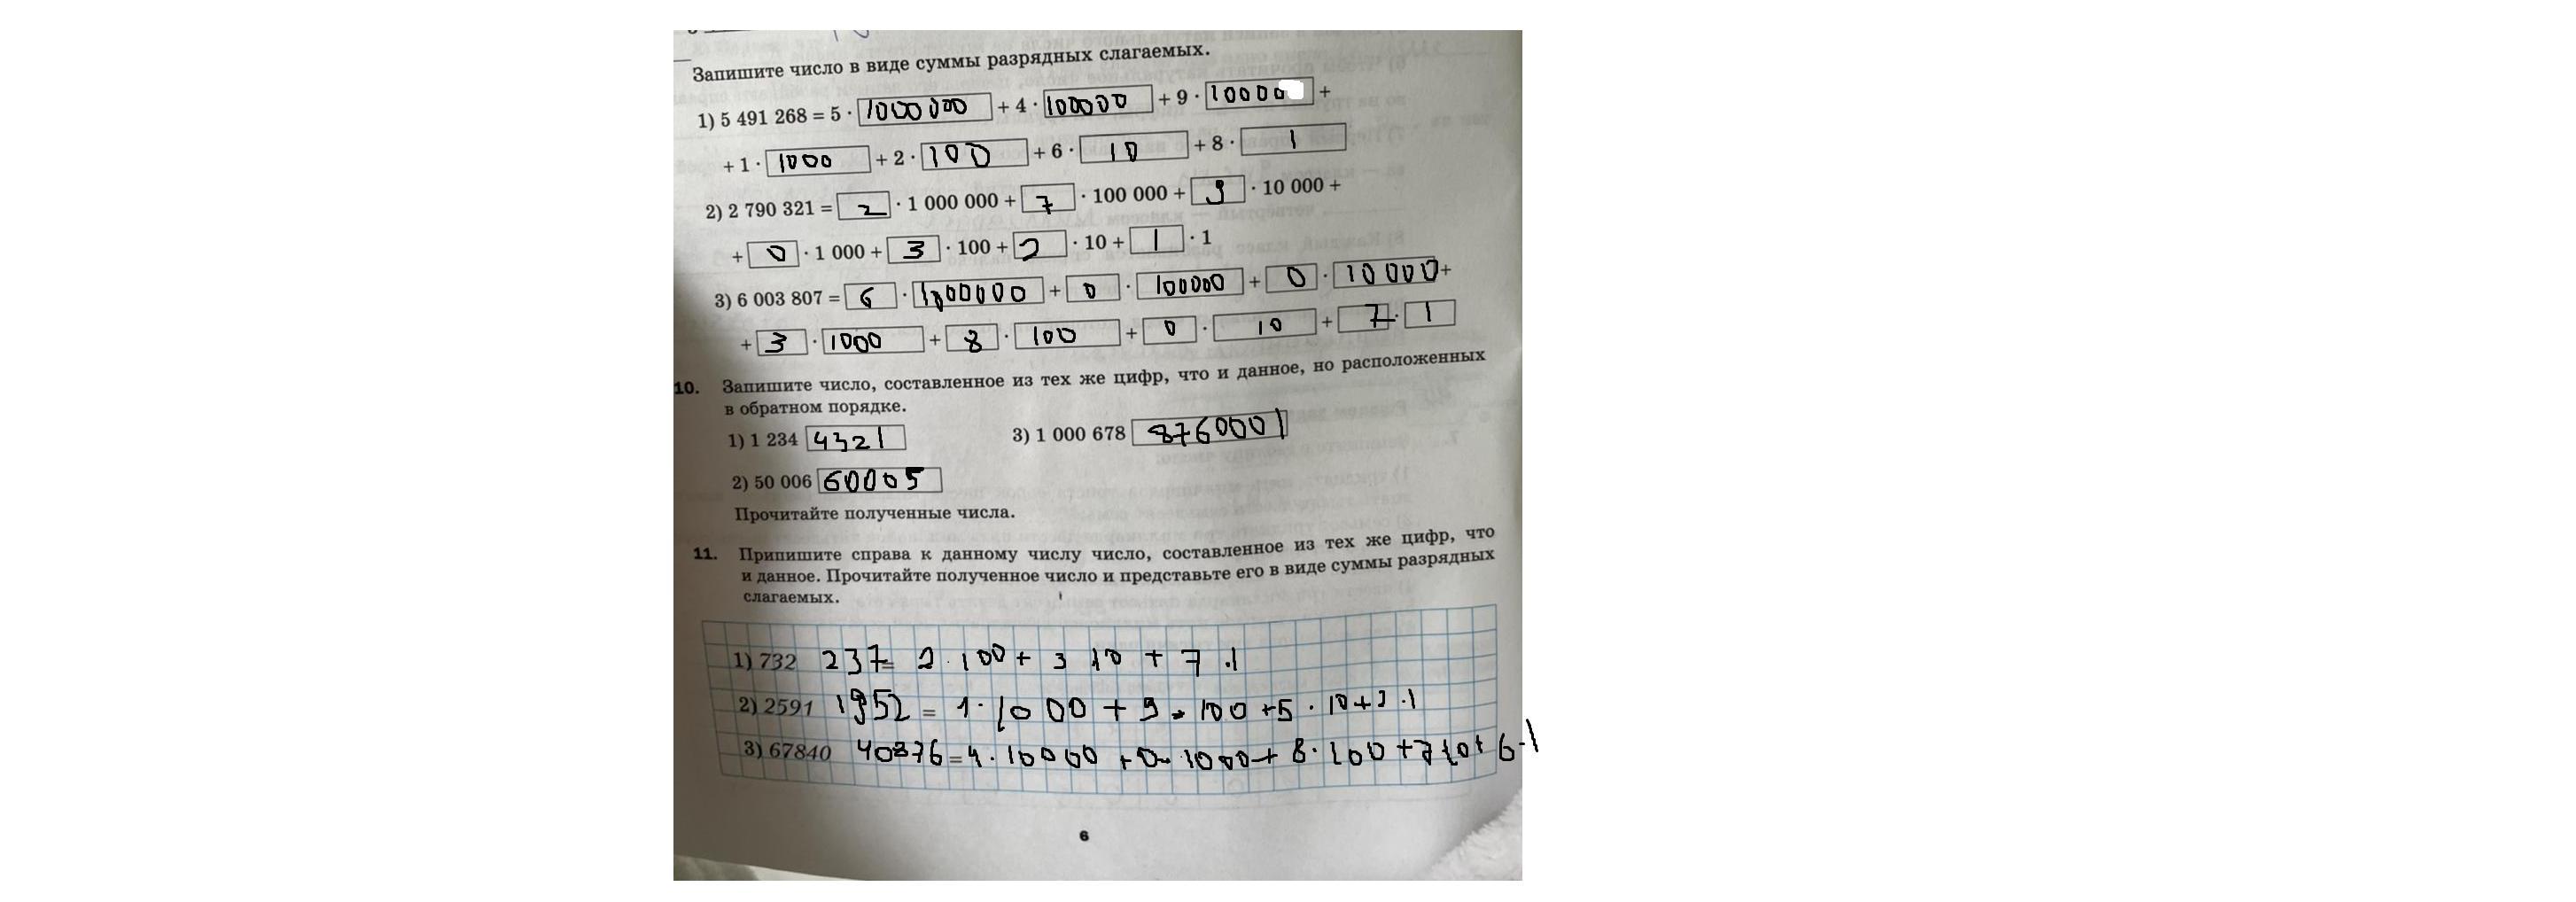 Запишите число в виде суммы разрядных слагаемых.
1) 5 491 268 = 5 · 1000 000 + 4 · 100000 + 9 · 10000 +
+ 1 · 1000 + 2 · 100 + 6 · 10 + 8 · 1
2) 2 790 321 = 2 · 1 000 000 + 7 · 100 000 + 9 · 10 000 +
+ 0 · 1 000 + 3 · 100 + 2 · 10 + 1 · 1
3) 6 003 807 = 6 · 1000000 + 0 · 100000 + 0 · 10 000 +
+ 3 · 1000 + 8 · 100 + 0 · 10 + 7 · 1
10. Запишите число, составленное из тех же цифр, что и данное, но расположенных
в обратном порядке.
1) 1 234 4321 3) 1 000 678 8760001
2) 50 006 60005
Прочитайте полученные числа.
11. Припишите справа к данному числу число, составленное из тех же цифр, что
и данное. Прочитайте полученное число и представьте его в виде суммы разрядных
слагаемых.
1) 732 237 = 2 · 100 + 3 10 + 7 · 1
2) 2591 1952 = 1 · 1000 + 9 · 100 + 5 · 10 + 2 · 1
3) 67840 40876 = 4 · 10000 + 0 · 1000 + 8 · 100 + 7 10 + 6 · 1
6